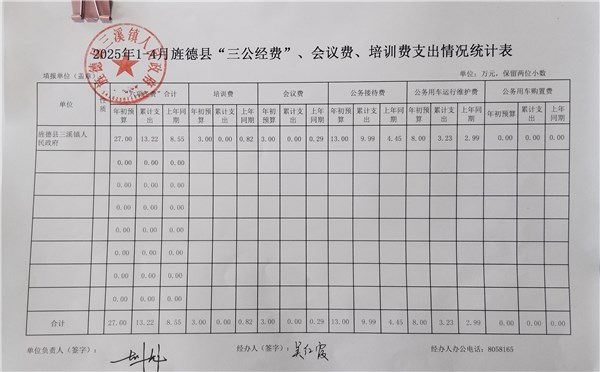 2025年1-4月旌德县“三公经费”、会议费、培训费支出情况统计表
旌德县三溪镇人民政府
填报单位（盖章） 单位：万元，保留两位小数
单位 性质 “三公经费”合计 培训费 会议费 公务接待费 公务用车运行维护费 公务用车购置费
年初预算 累计支出 上年同期 年初预算 累计支出 上年同期 年初预算 累计支出 上年同期 年初预算 累计支出 上年同期 年初预算 累计支出 上年同期 年初预算 累计支出 上年同期
旌德县三溪镇人民政府 27.00 13.22 8.55 3.00 0.00 0.82 3.00 0.00 0.29 13.00 9.99 4.45 8.00 3.23 2.99 0.00 0.00 0.00
0.00 0.00 0.00
0.00 0.00 0.00
0.00 0.00 0.00
0.00 0.00 0.00
0.00 0.00 0.00
0.00 0.00 0.00
0.00 0.00 0.00
合计 27.00 13.22 8.55 3.00 0.00 0.82 3.00 0.00 0.29 13.00 9.99 4.45 8.00 3.23 2.99 0.00 0.00 0.00
单位负责人（签字）： 经办人（签字）：吴红霞 经办人办公电话：8058165